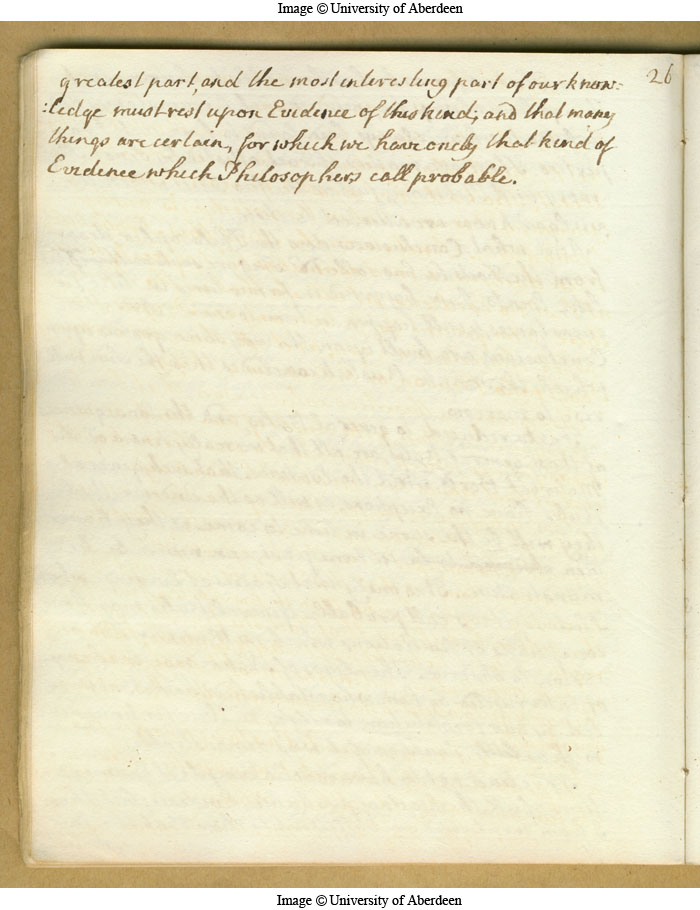 Image © University of Aberdeen
26
greatest part, and the most interesting part of our know:
:ledge must rest upon Evidence of this kind; and that many
things are certain, for which we have onely that kind of
Evidence which Philosophers call probable.
Image © University of Aberdeen